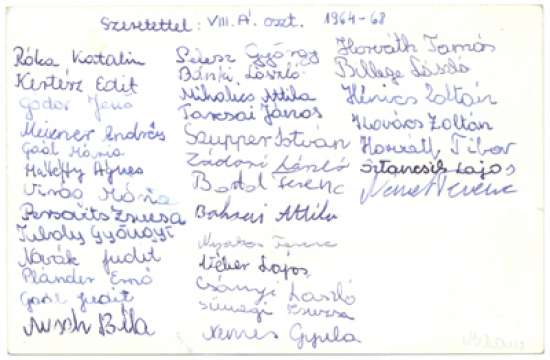 Szeretettel: VIII. A. oszt. 1964-68
Róka Katalin
Kertész Edit
Godor Jenő
Meixner András
Gaál Mária
Agnes
Virág Mária
Zsuzsa
Tuboly Gyöngyi
Novák Judit
Plánder Ernő
Gaál Judit
Béla
György
Bánki László
Mihalics Attila
Tarcsai János
Szupper István
Zádori László
Ferenc
Attila
Nyakas Ferenc
Wéber Lajos
Csányi László
Sümegi Zsuzsa
Nemes Gyula
Horváth Tamás
Billege László
Hénics Zoltán
Kovács Zoltán
Horváth Tibor
Stancsik Lajos
Németh Ferenc